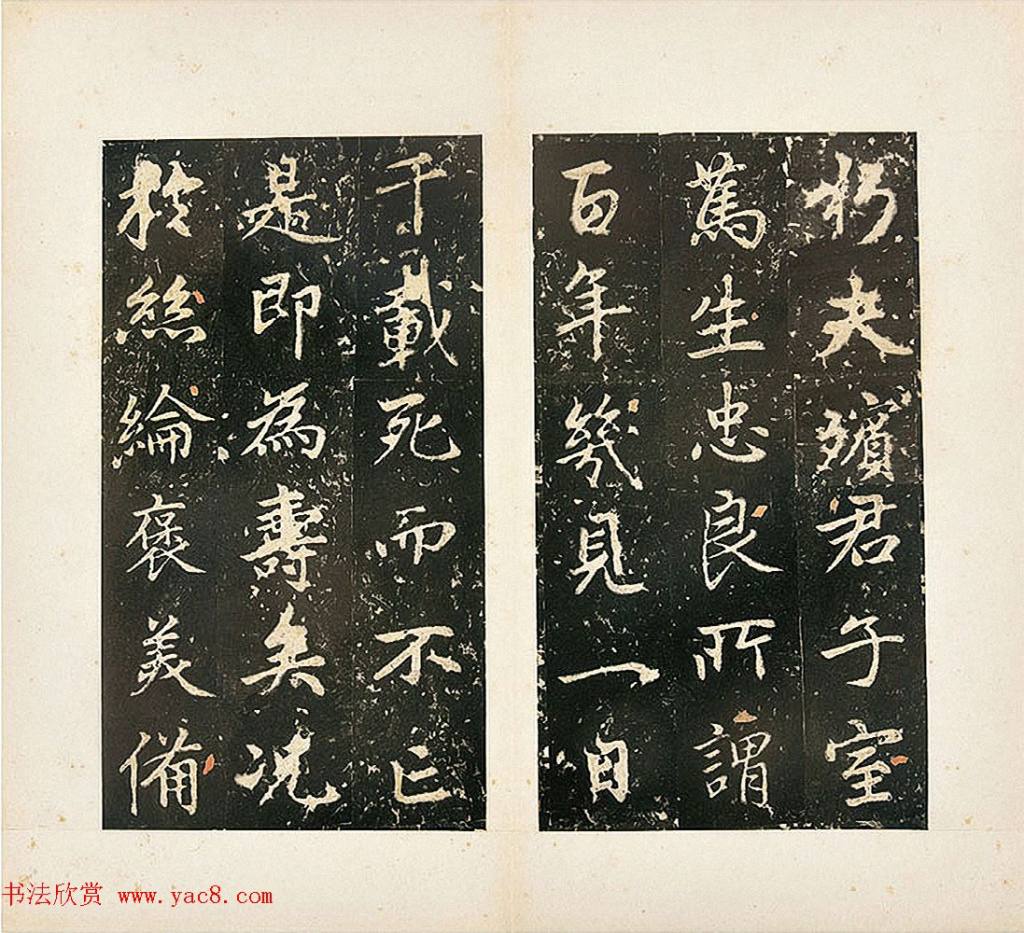 朽夫殯君子室
蔿生忠良所謂
百年幾見一自
千載死而不亡
是即為壽矣况
於絲綸褒美備
书法欣赏 www.yac8.com